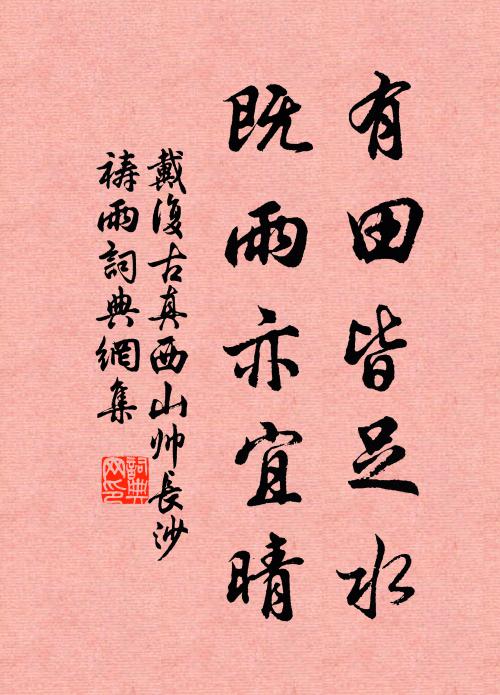 有田皆足水
既雨亦宜晴
戴復古真西山帅長沙
祷雨詞典網集
詞典网印